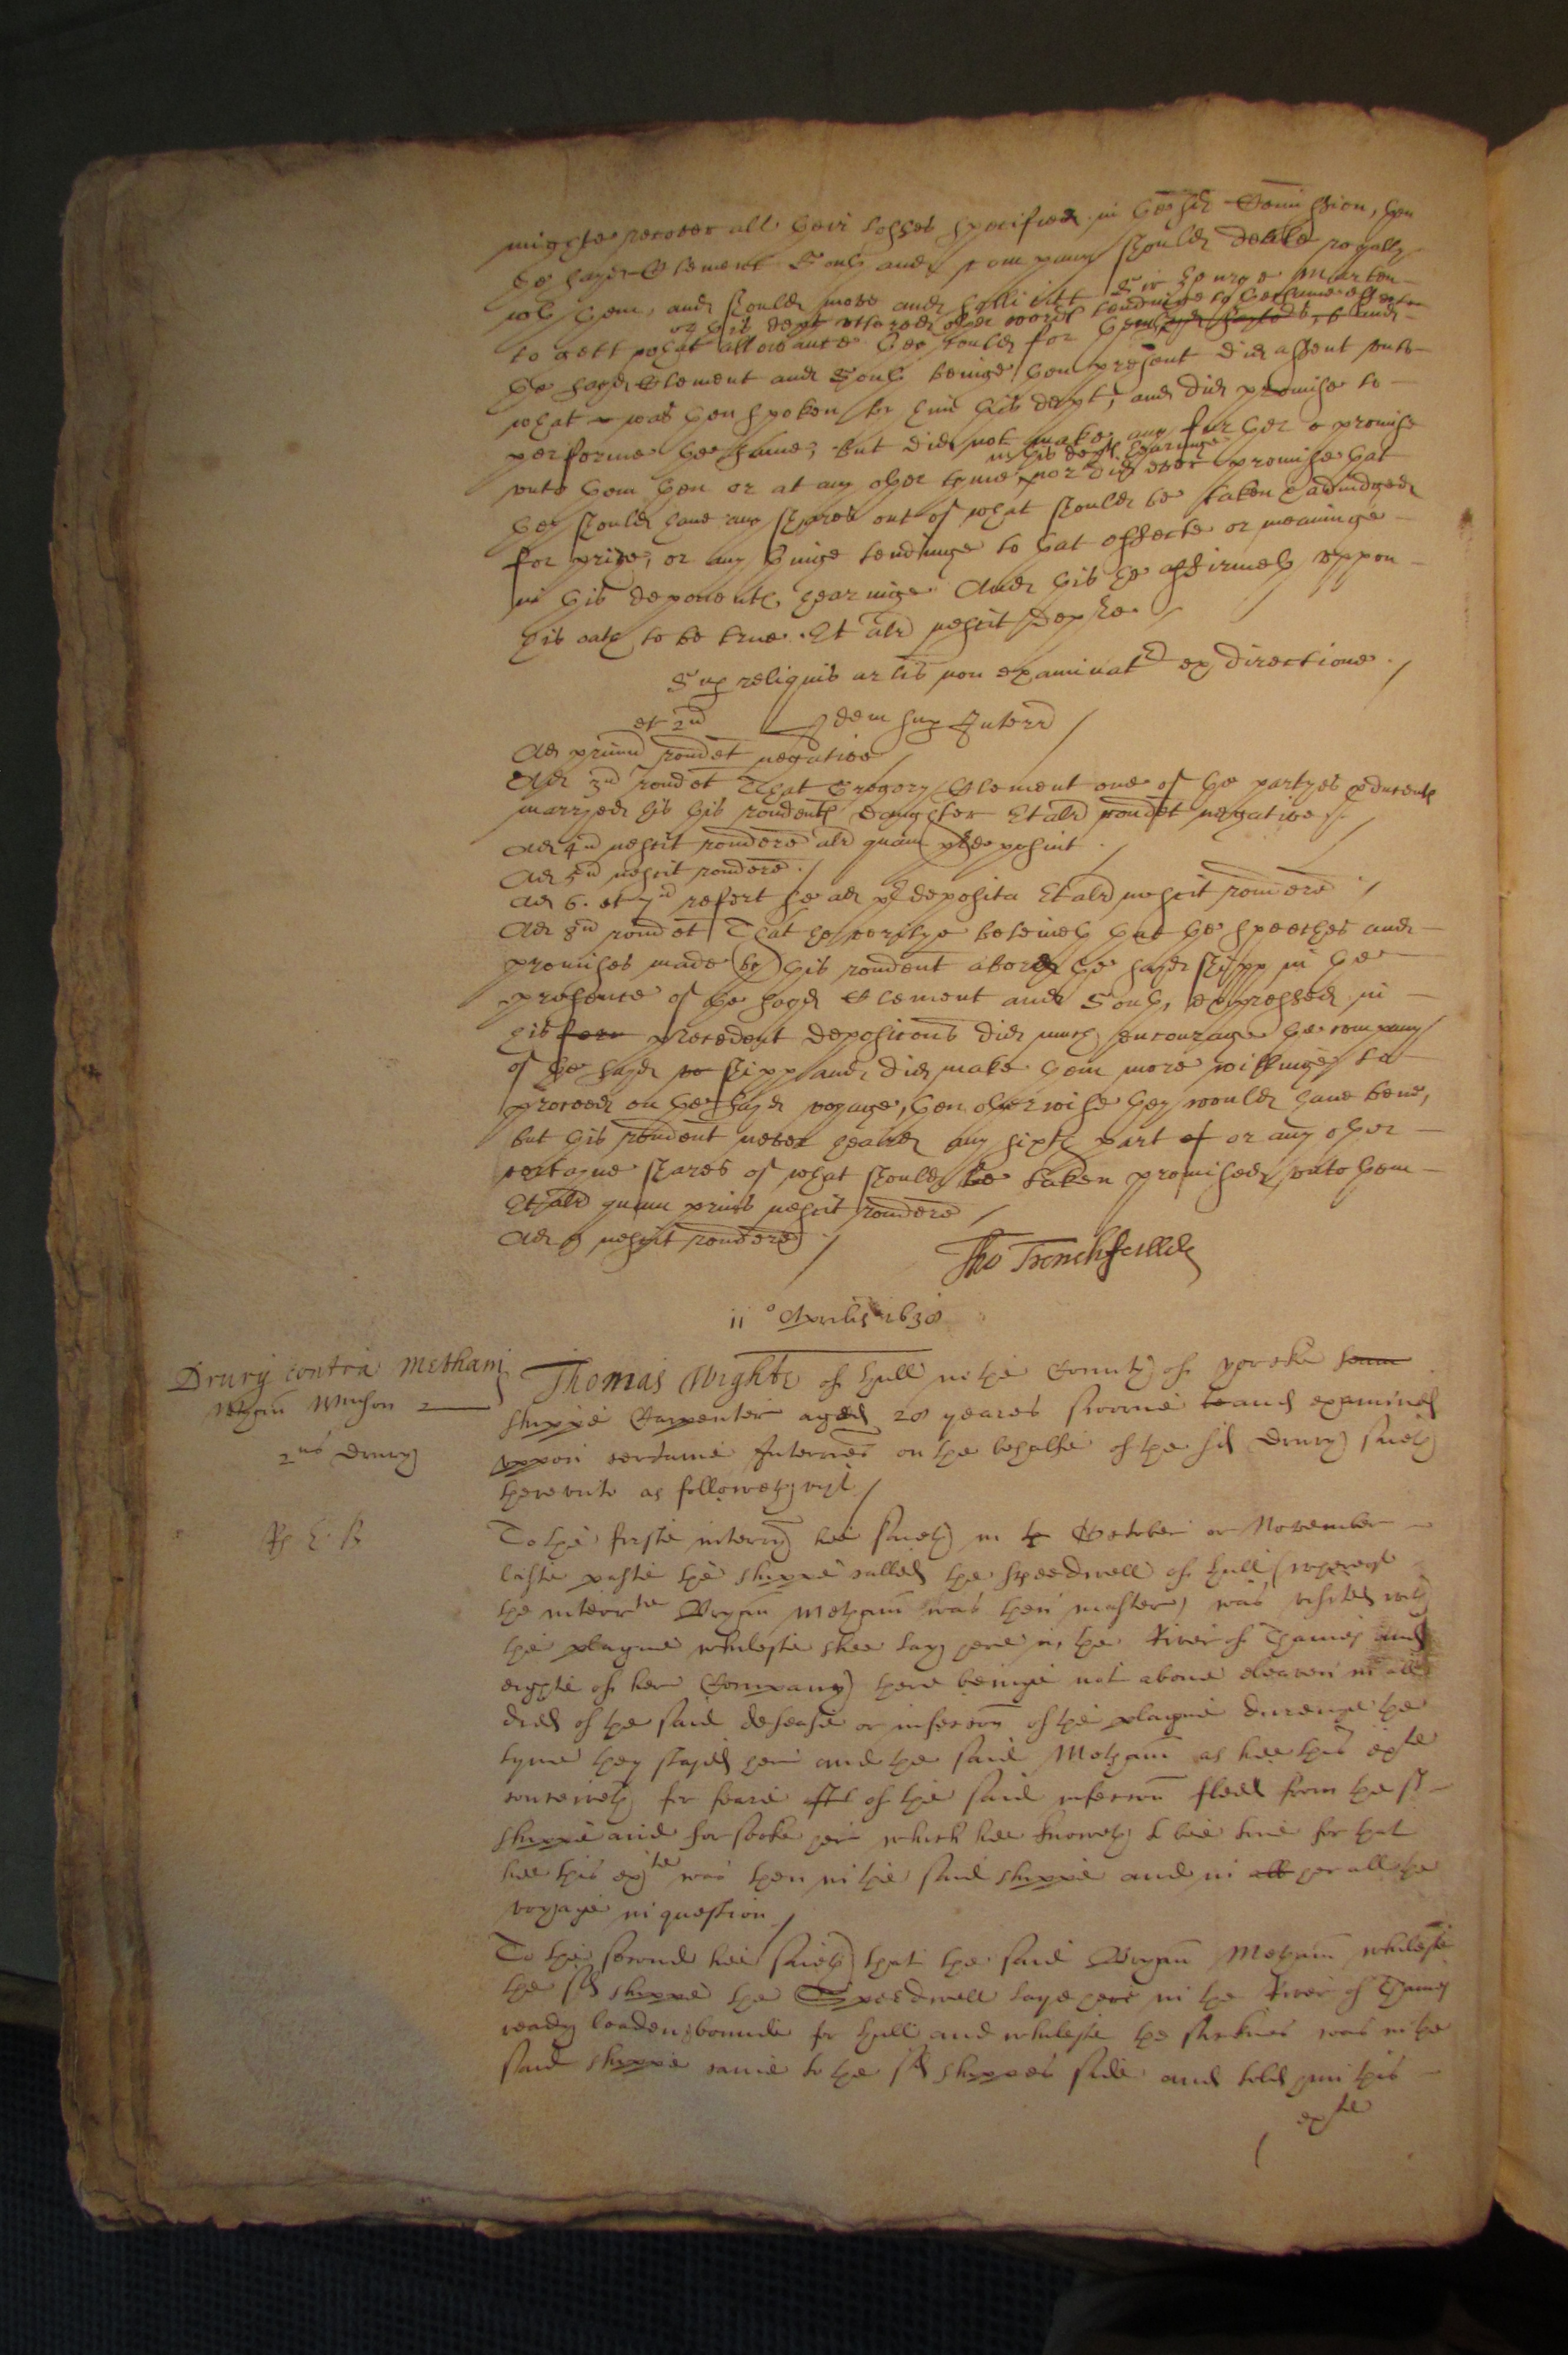 mighte recover all their losses specified in the sd Comission, then
the sayd Clement Sowth and company should deale royally
wth them, and should move and sollicitt Sir Henrye Marten
or this dept uttered other words tendinge to the same effecte
to gett what allowance hee could for them, and
the sayd Clement and Sowth beinge then present did assent unto
what was then spoken by him this dept, and did promise to
performe the same, But did not make any further promise
in this depts hearinge
unto them then or at any other tyme nor did ever promise that
they should have any shares out of what should be taken & adiudged
for prize, or any thinge tendinge to that effecte or meaninge
in this deponents hearinge And this he affirmeth uppon
his oath to be true. Et alr nescit depre
Sup reliquis arlis non examinatr ex directione.
Idem sup Interr
et 2nd
Ad primu rondet negative
Ad 3 rondet That Gregory Clement one of the partyes producents
marryed his this rondents daughter Et alr rondet negative
Ad 4 nescit rondere alr quam predeposuit.
Ad 5 nescit rondere.
Ad 6. et 7 refert se ad predeposita Et alr nescit rondere.
Ad 8 rondet That he verilye beleiveth that the speeches and
promises made by this rondent abord the sayd shipp in the
presence of the sayd Clement and Sowth, expressed in
his fore precedent deposicons did much encourage the company
of the sayd shipp and did make them more willinge to
proceed on the sayd voyage, then otherwise they would have bene,
but this rondent never heard any sixth part of or any other
certayne shares of what should be taken promised unto them
Et alr quam prius nescit rondere
Ad 9 nescit rondere
Tho Trenchfeilld
11º Aprilis 1638
Drury contra Metham
Thomas Wighte of Hull in the County of Yorcke
shippe Carpenter aged 28 yeares sworne and examined
2us Drury
uppon certaine Interries on the behalfe of the sd Drury saieth
thereunto as followeth vizt
To the firste interry hee saieth in October or November
laste paste the shippe called the Speedwell of Hull (whereof
the interrte Bryan Metham was then master) was visited with
the plague whileste shee lay here in the River of Thames and
eighte of her Company there beinge not above eleaven in all
died of the said desease or infeccon of the plague dureinge the
tyme they stayed here and the said Metham as hee this exte
conceiveth for feare of the said infeccon fledd from the
shippe and forsooke her which hee knoweth to bee true for that
hee this exte was then in the said shippe and in her all the
voyage in question
To the second hee saieth that the said Bryan Metham whileste
the sd shippe the Speedwell laye here in the River of Thames
ready loaden, bounde for Hull and whileste the sicknes was in the
said shippe came to the sd shippes side and told him this
exte